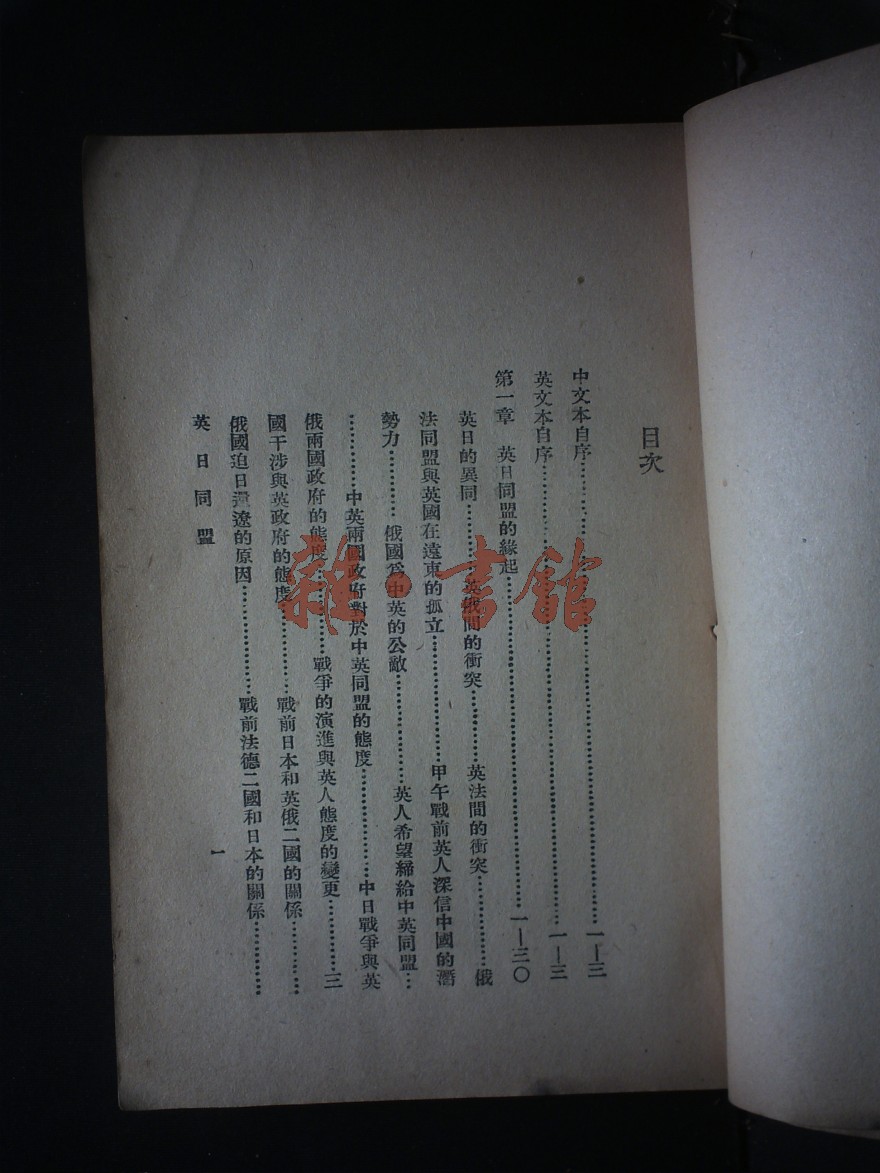 目次
中文本自序……一—三
英文本自序……一—三
第一章 英日同盟的緣起……一—三〇
英日的異同……英俄間的衝突……英法間的衝突……俄
法同盟與英國在遠東的孤立……甲午戰前英人深信中國的潛
勢力……俄國爲中英的公敵……英人希望締給中英同盟…
……中英兩國政府對於中英同盟的態度……中日戰爭與英
俄兩國政府的態度……戰爭的演進與英人態度的變更……三
國干涉與英政府的態度……戰前日本和英俄二國的關係……
俄國迫日還遼的原因……戰前法德二國和日本的關係……
英日同盟
一
雜·書館